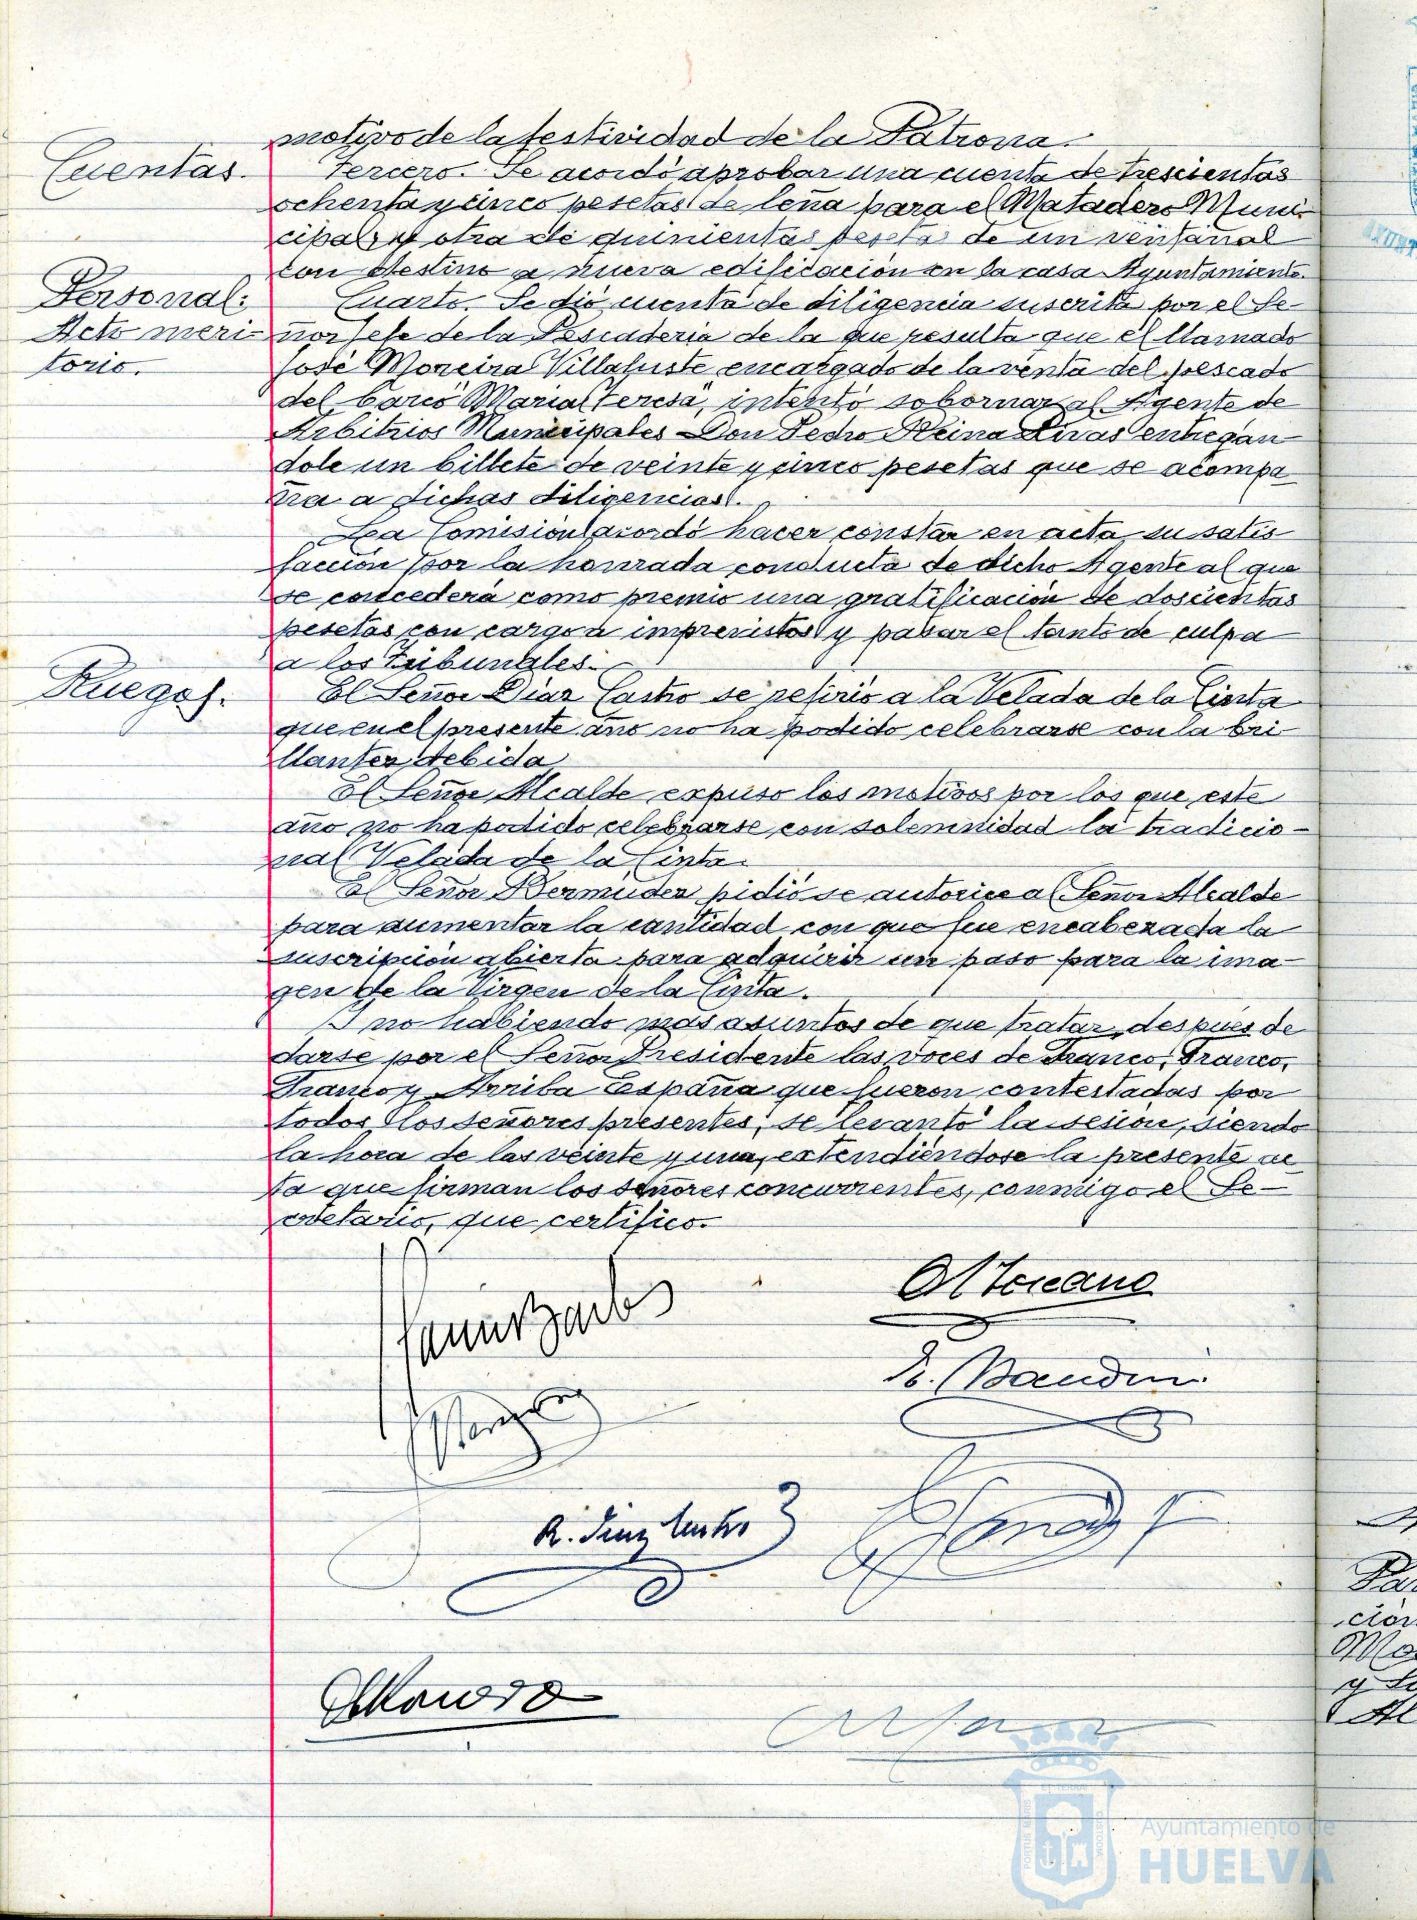 motivo de la festividad de la Patrona.
Cuentas.
Tercero. Se acordó aprobar una cuenta de trescientas
ochenta y cinco pesetas de leña para el Matadero Muni-
cipal, y otra de quinientas pesetas de un ventanal
con destino a nueva edificación en la casa Ayuntamiento.
Personal:
Acto meri-
torio.
Cuarto. Se dió cuenta de diligencia suscrita por el Se-
ñor Jefe de la Pescadería de la que resulta que el llamado
José Moreira Villafuste encargado de la venta del pescado
del barco "Maria Teresa", intentó sobornar al Agente de
Arbitrios Municipales Don Pedro Reina Rivas entregan-
dole un billete de veinte y cinco pesetas que se acompa
ña a dichas diligencias.
La Comisión acordó hacer constar en acta su satis-
facción por la honrada conducta de dicho Agente al que
se concederá como premio una gratificación de doscientas
pesetas con cargo a imprevistos y pasar el tanto de culpa
a los Tribunales.
Ruegos.
El Señor Díaz Castro se refirió a la Velada de la Cinta
que en el presente año no ha podido celebrarse con la bri-
llantez debida
El Señor Alcalde expuso los motivos por los que este
año no ha podido celebrarse con solemnidad la tradicio-
nal Velada de la Cinta.
El Señor Bermúdez pidió se autorice al Señor Alcalde
para aumentar la cantidad con que fue encabezada la
suscripción abierta para adquirir un paso para la ima-
gen de la Virgen de la Cinta.
Y no habiendo más asuntos de que tratar, después de
darse por el Señor Presidente las voces de Franco, Franco,
Franco y Arriba España que fueron contestadas por
todos los señores presentes, se levantó la sesión, siendo
la hora de las veinte y una, extendiéndose la presente ac
ta que firman los señores concurrentes, conmigo el Se-
cretario, que certifico.
R. Díaz Castro
Ayuntamiento de
HUELVA